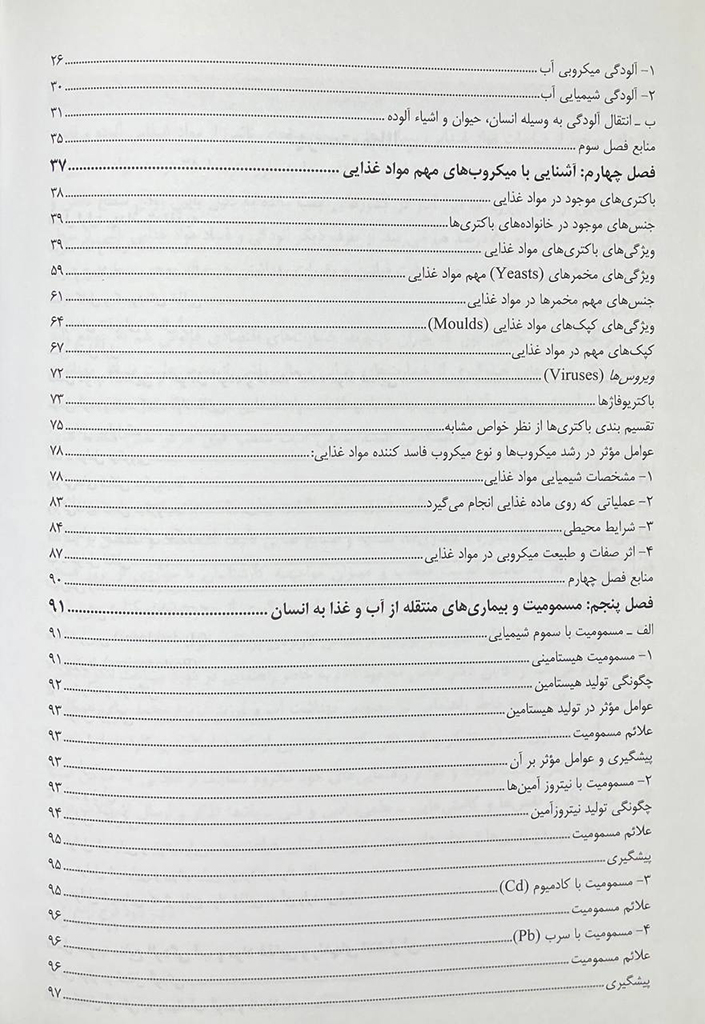 ۱- آلودگی میکروبی آب ..... ۲۶
۲- آلودگی شیمیایی آب ..... ۳۰
ب ـ انتقال آلودگی به وسیله انسان، حیوان و اشیاء آلوده ..... ۳۱
منابع فصل سوم ..... ۳۵
فصل چهارم: آشنایی با میکروب‌های مهم مواد غذایی ..... ۳۷
باکتری‌های موجود در مواد غذایی ..... ۳۸
جنس‌های موجود در خانواده‌های باکتری‌ها ..... ۳۹
ویژگی‌های باکتری‌های مواد غذایی ..... ۳۹
ویژگی‌های مخمرهای (Yeasts) مهم مواد غذایی ..... ۵۹
جنس‌های مهم مخمرها در مواد غذایی ..... ۶۱
ویژگی‌های کپک‌های مواد غذایی (Moulds) ..... ۶۴
کپک‌های مهم در مواد غذایی ..... ۶۷
ویروس‌ها (Viruses) ..... ۷۲
باکتریوفاژها ..... ۷۳
تقسیم بندی باکتری‌ها از نظر خواص مشابه ..... ۷۵
عوامل مؤثر در رشد میکروب‌ها و نوع میکروب فاسد کننده مواد غذایی: ..... ۷۸
۱- مشخصات شیمیایی مواد غذایی ..... ۷۸
۲- عملیاتی که روی ماده غذایی انجام می‌گیرد ..... ۸۳
۳- شرایط محیطی ..... ۸۴
۴- اثر صفات و طبیعت میکروبی در مواد غذایی ..... ۸۷
منابع فصل چهارم ..... ۹۰
فصل پنجم: مسمومیت و بیماری‌های منتقله از آب و غذا به انسان ..... ۹۱
الف ـ مسمومیت با سموم شیمیایی ..... ۹۱
۱- مسمومیت هیستامینی ..... ۹۱
چگونگی تولید هیستامین ..... ۹۲
عوامل مؤثر در تولید هیستامین ..... ۹۳
علائم مسمومیت ..... ۹۳
پیشگیری و عوامل مؤثر بر آن ..... ۹۳
۲- مسمومیت با نیتروز آمین‌ها ..... ۹۳
چگونگی تولید نیتروزآمین ..... ۹۴
علائم مسمومیت ..... ۹۵
پیشگیری ..... ۹۵
۳- مسمومیت با کادمیوم (Cd) ..... ۹۵
علائم مسمومیت ..... ۹۶
۴- مسمومیت با سرب (Pb) ..... ۹۶
علائم مسمومیت ..... ۹۶
پیشگیری ..... ۹۷